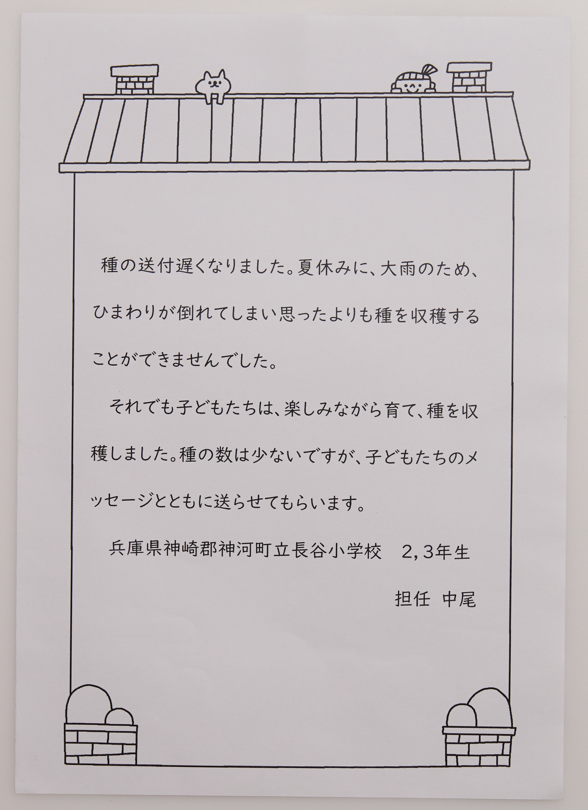 種の送付遅くなりました。夏休みに、大雨のため、
ひまわりが倒れてしまい思ったよりも種を収穫する
ことができませんでした。
それでも子どもたちは、楽しみながら育て、種を収
穫しました。種の数は少ないですが、子どもたちのメ
ッセージとともに送らせてもらいます。
兵庫県神崎郡神河町立長谷小学校　2,3年生
担任　中尾